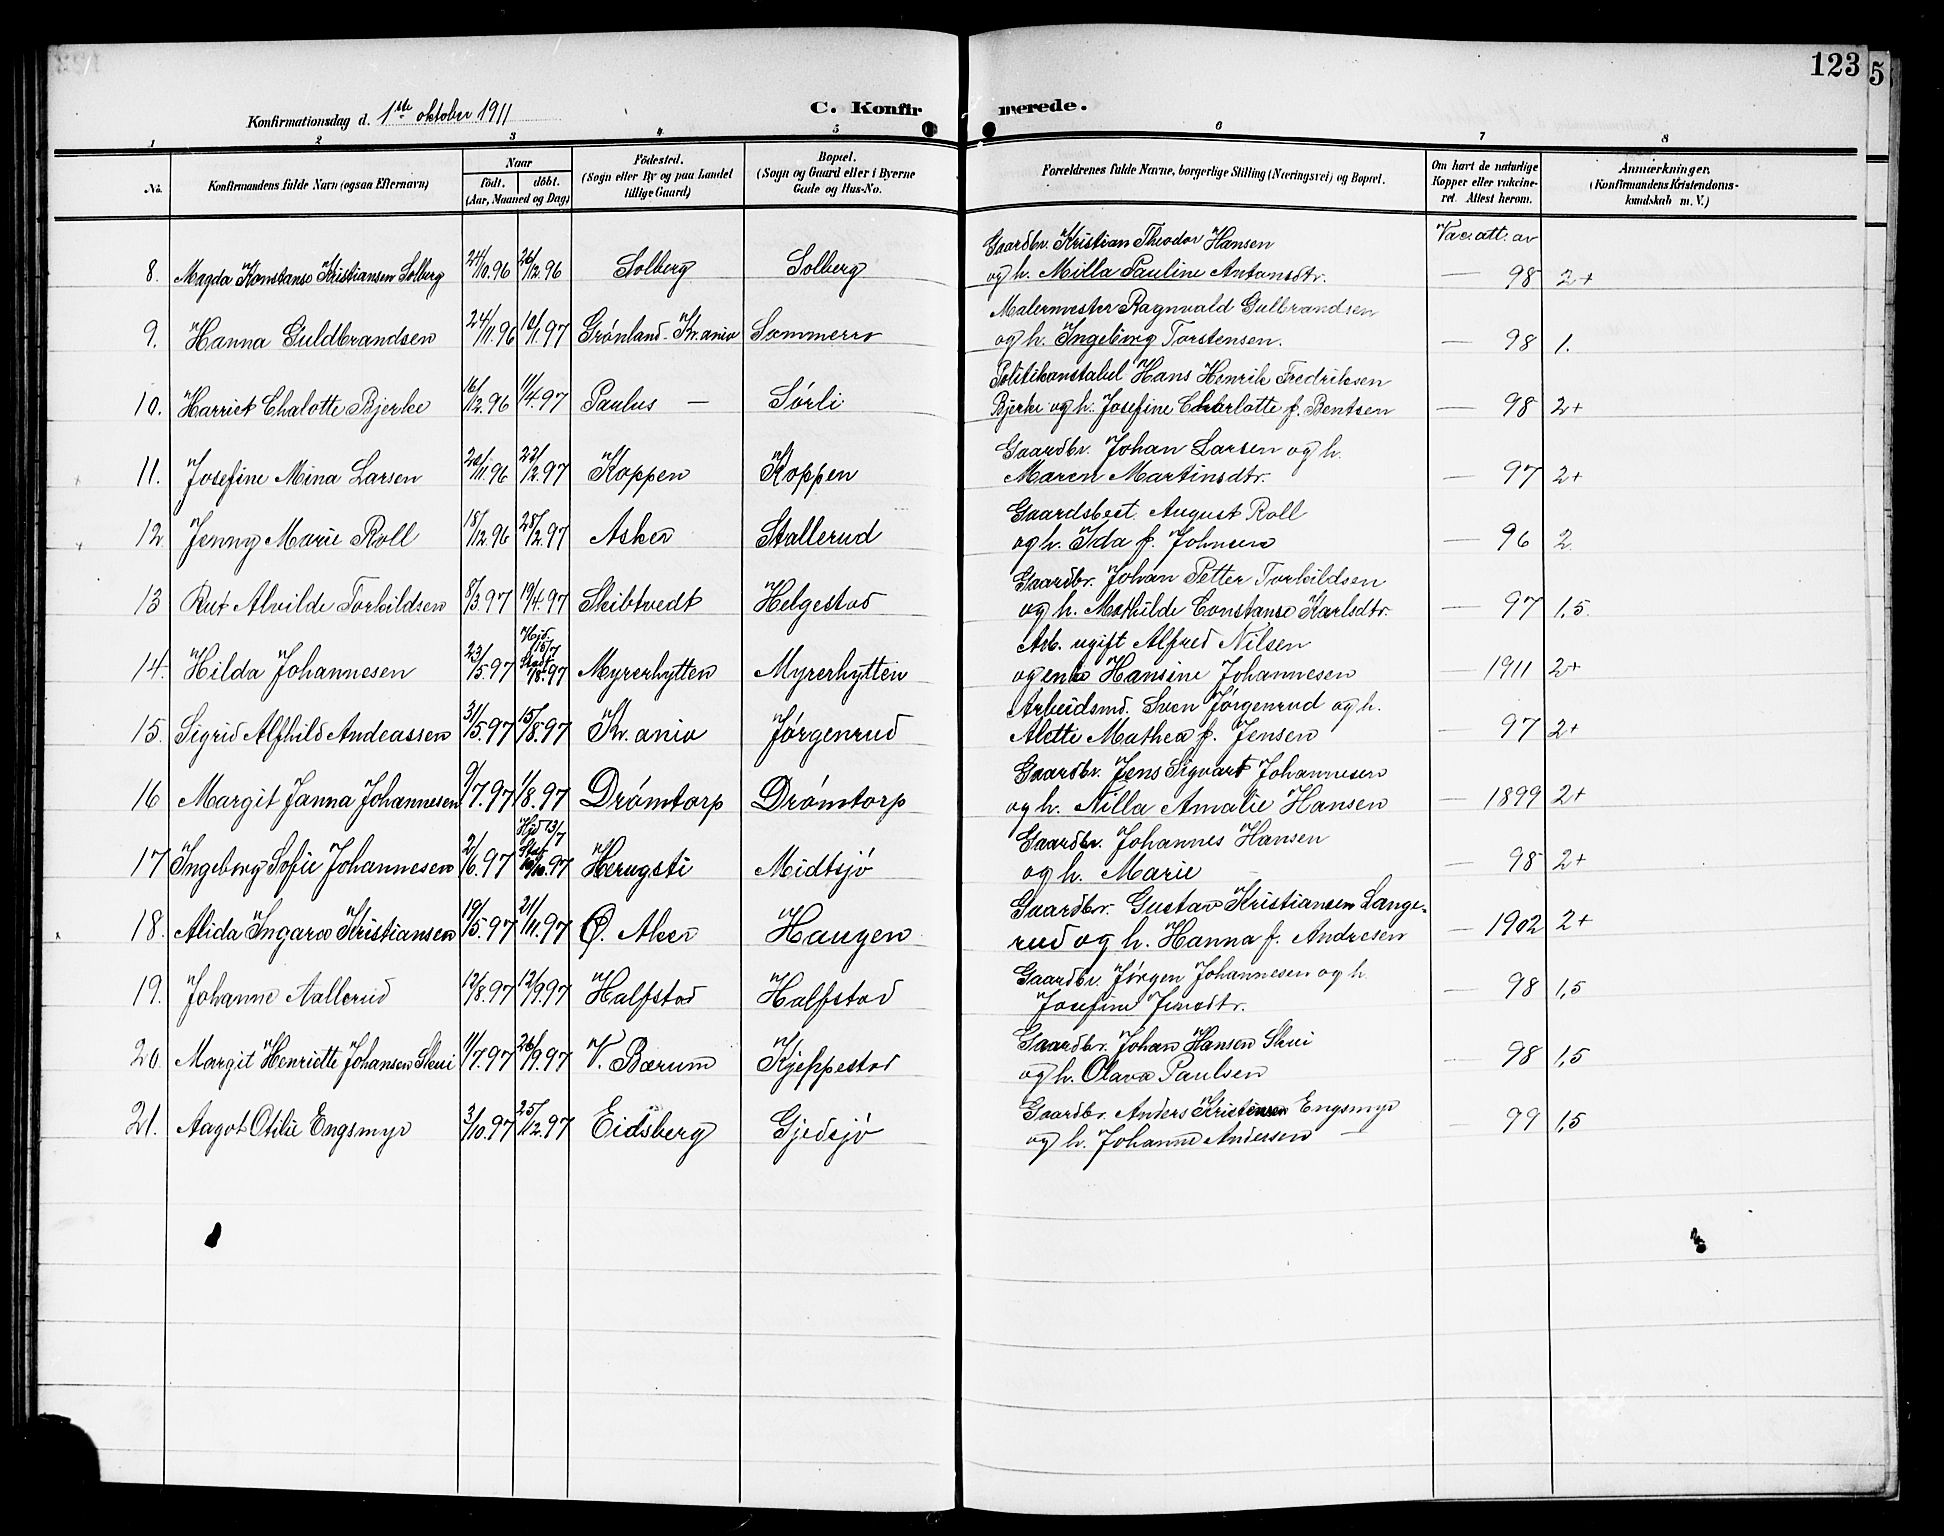 123
5
Konfirmationsdag d. 1ste oktober 1911
C. Konfirmerede.
1 2 3 4 5 6 7 8
No.
Konfirmandens fulde Navn (ogsaa Efternavn)
Naar
födt. döbt.
(Aar, Maaned og Dag)
Födested.
(Sogn eller By og paa Landet
tillige Gaard)
Bopæl.
(Sogn og Gaard eller i Byerne
Gade og Hus-No.
Forældrenes fulde Navne, borgerlige Stilling (Næringsvei) og Bopæl.
Om havt de naturlige
Kopper eller vakcine-
ret. Attest herom.
Anmærkninger.
(Konfirmandens Kristendoms-
kundskab m. V.)
Gaardbr. Kristian Theodor Hansen Vac. att. av
8. Magda Konstanse Kristiansen Solberg 24/10.96 26/12.96 Solberg Solberg og h. Milla Pauline Antonsdtr. — 98 2+
Malermester Ragnvald Gulbrandsen
9. Hanna Guldbrandsen 24/11.96 10/1.97 Grønland. Kr.ania Sommerro og h. Ingeborg Torstensen. — 98 1.
Politikonstabel Hans Henrik Fredriksen
10. Harriet Chalotte Bjerke 16/12.96 11/4.97 Paulus — Sørli Bjerke og h. Josefine Charlotte f. Bentsen — 98 2+
Gaardbr. Johan Larsen og h.
11. Josefine Mina Larsen 20/11.96 22/2.97 Koppen Koppen Maren Martinsdtr. — 97 2+
Gaardsbest. August Roll
12 Jenny Marie Roll 18/12.96 28/2.97 Asker Stallerud og h. Ida f. Johnsen — 96 2
Gaardbr. Johan Petter Torkildsen
13 Rut Alvilde Torkildsen 8/3.97 19/4.97 Skibtvedt Helgestad og h. Mathilde Constanse Karlsdtr. — 97 1,5.
Arb. ugift Alfred Nilsen
14. Hilda Johannesen 23/5.97 Hjd. 15/7 Stadf. /8.97 Myrerhytten Myrerhytten og enke Hansine Johannesen — 1911 2+
Arbeidsmd. Sven Jørgenrud og h.
15. Sigrid Alfhild Andeassen 31/5.97 15/8.97 Kr.ania Jørgenrud Alette Mathea f. Jensen — 97 2+
Gaardbr. Jens Sigvart Johannesen
16 Margit Janna Johannesen 9/7.97 1/8.97 Drømtorp Drømtorp og h. Nilla Amalie Hansen — 1899 2+
Gaardbr. Johannes Hansen
17 Ingeborg Sofie Johannesen 2/6.97 Hjd 13/7 Stadf. /10.97 Herugsti Midtsjø og h. Marie — 98 2+
Gaardbr. Gustav Kristiansen Lange-
18. Alida Ingara Kristiansen 19/5.97 21/11.97 Ø. Aker Haugen rud og h. Hanna f. Andresen — 1902 2+
Gaardbr. Jørgen Johannesen og h.
19. Johanne Aallerud 12/8.97 12/9.97 Halfstad Halfstad Josefine Jensdtr. — 98 1,5
Gaardbr. Johan Hansen Skui
20. Margit Henriette Johansen Skui 11/7.97 26/9.97 V. Bærum Kjeppestad og h. Olava Paulsen — 98 1,5
Gaardbr. Anders Kristensen Engsmyr
21. Aagot Otilie Engsmyr 3/10.97 25/12.97 Eidsberg Gjedsjø og h. Johanne Andersen — — 99 1,5